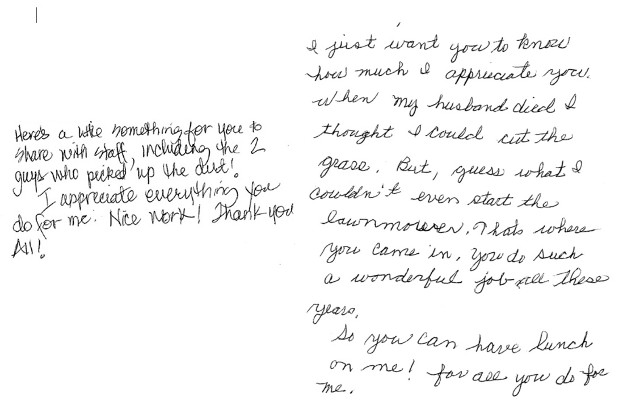 Here's a little something for you to
share with staff, including the 2
guys who picked up the dirt!
I appreciate everything you
do for me. Nice work! Thank you
All!
I just want you to know
how much I appreciate you.
When my husband died I
thought I could cut the
grass. But, guess what I
couldn't even start the
lawnmower. Thats where
you came in. You do such
a wonderful job all these
years.
So you can have lunch
on me! for all you do for
me.